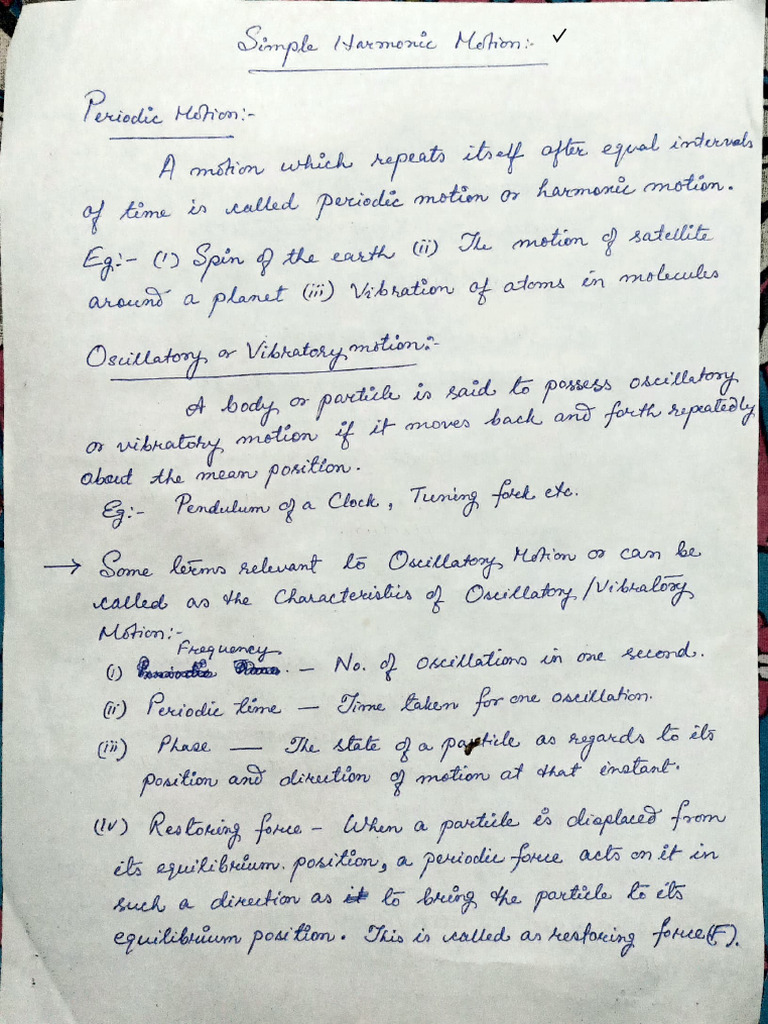 Simple Harmonic Motion:- ✓
Periodic Motion:-
A motion which repeats itself after equal intervals
of time is called periodic motion or harmonic motion.
Eg:- (i) Spin of the earth (ii) The motion of satellite
around a planet (iii) Vibration of atoms in molecules
Oscillatory or Vibratory motion:-
A body or particle is said to possess oscillatory
or vibratory motion if it moves back and forth repeatedly
about the mean position.
Eg:- Pendulum of a Clock, Tuning fork etc.
→ Some terms relevant to Oscillatory Motion or can be
called as the Characteristics of Oscillatory/Vibratory
Motion:-
(i) Frequency. - No. of oscillations in one second.
(ii) Periodic time - Time taken for one oscillation.
(iii) Phase - The state of a particle as regards to its
position and direction of motion at that instant.
(iv) Restoring force - When a particle is displaced from
its equilibrium. position, a periodic force acts on it in
such a direction as to bring the particle to its
equilibrium position. This is called as restoring force(F).